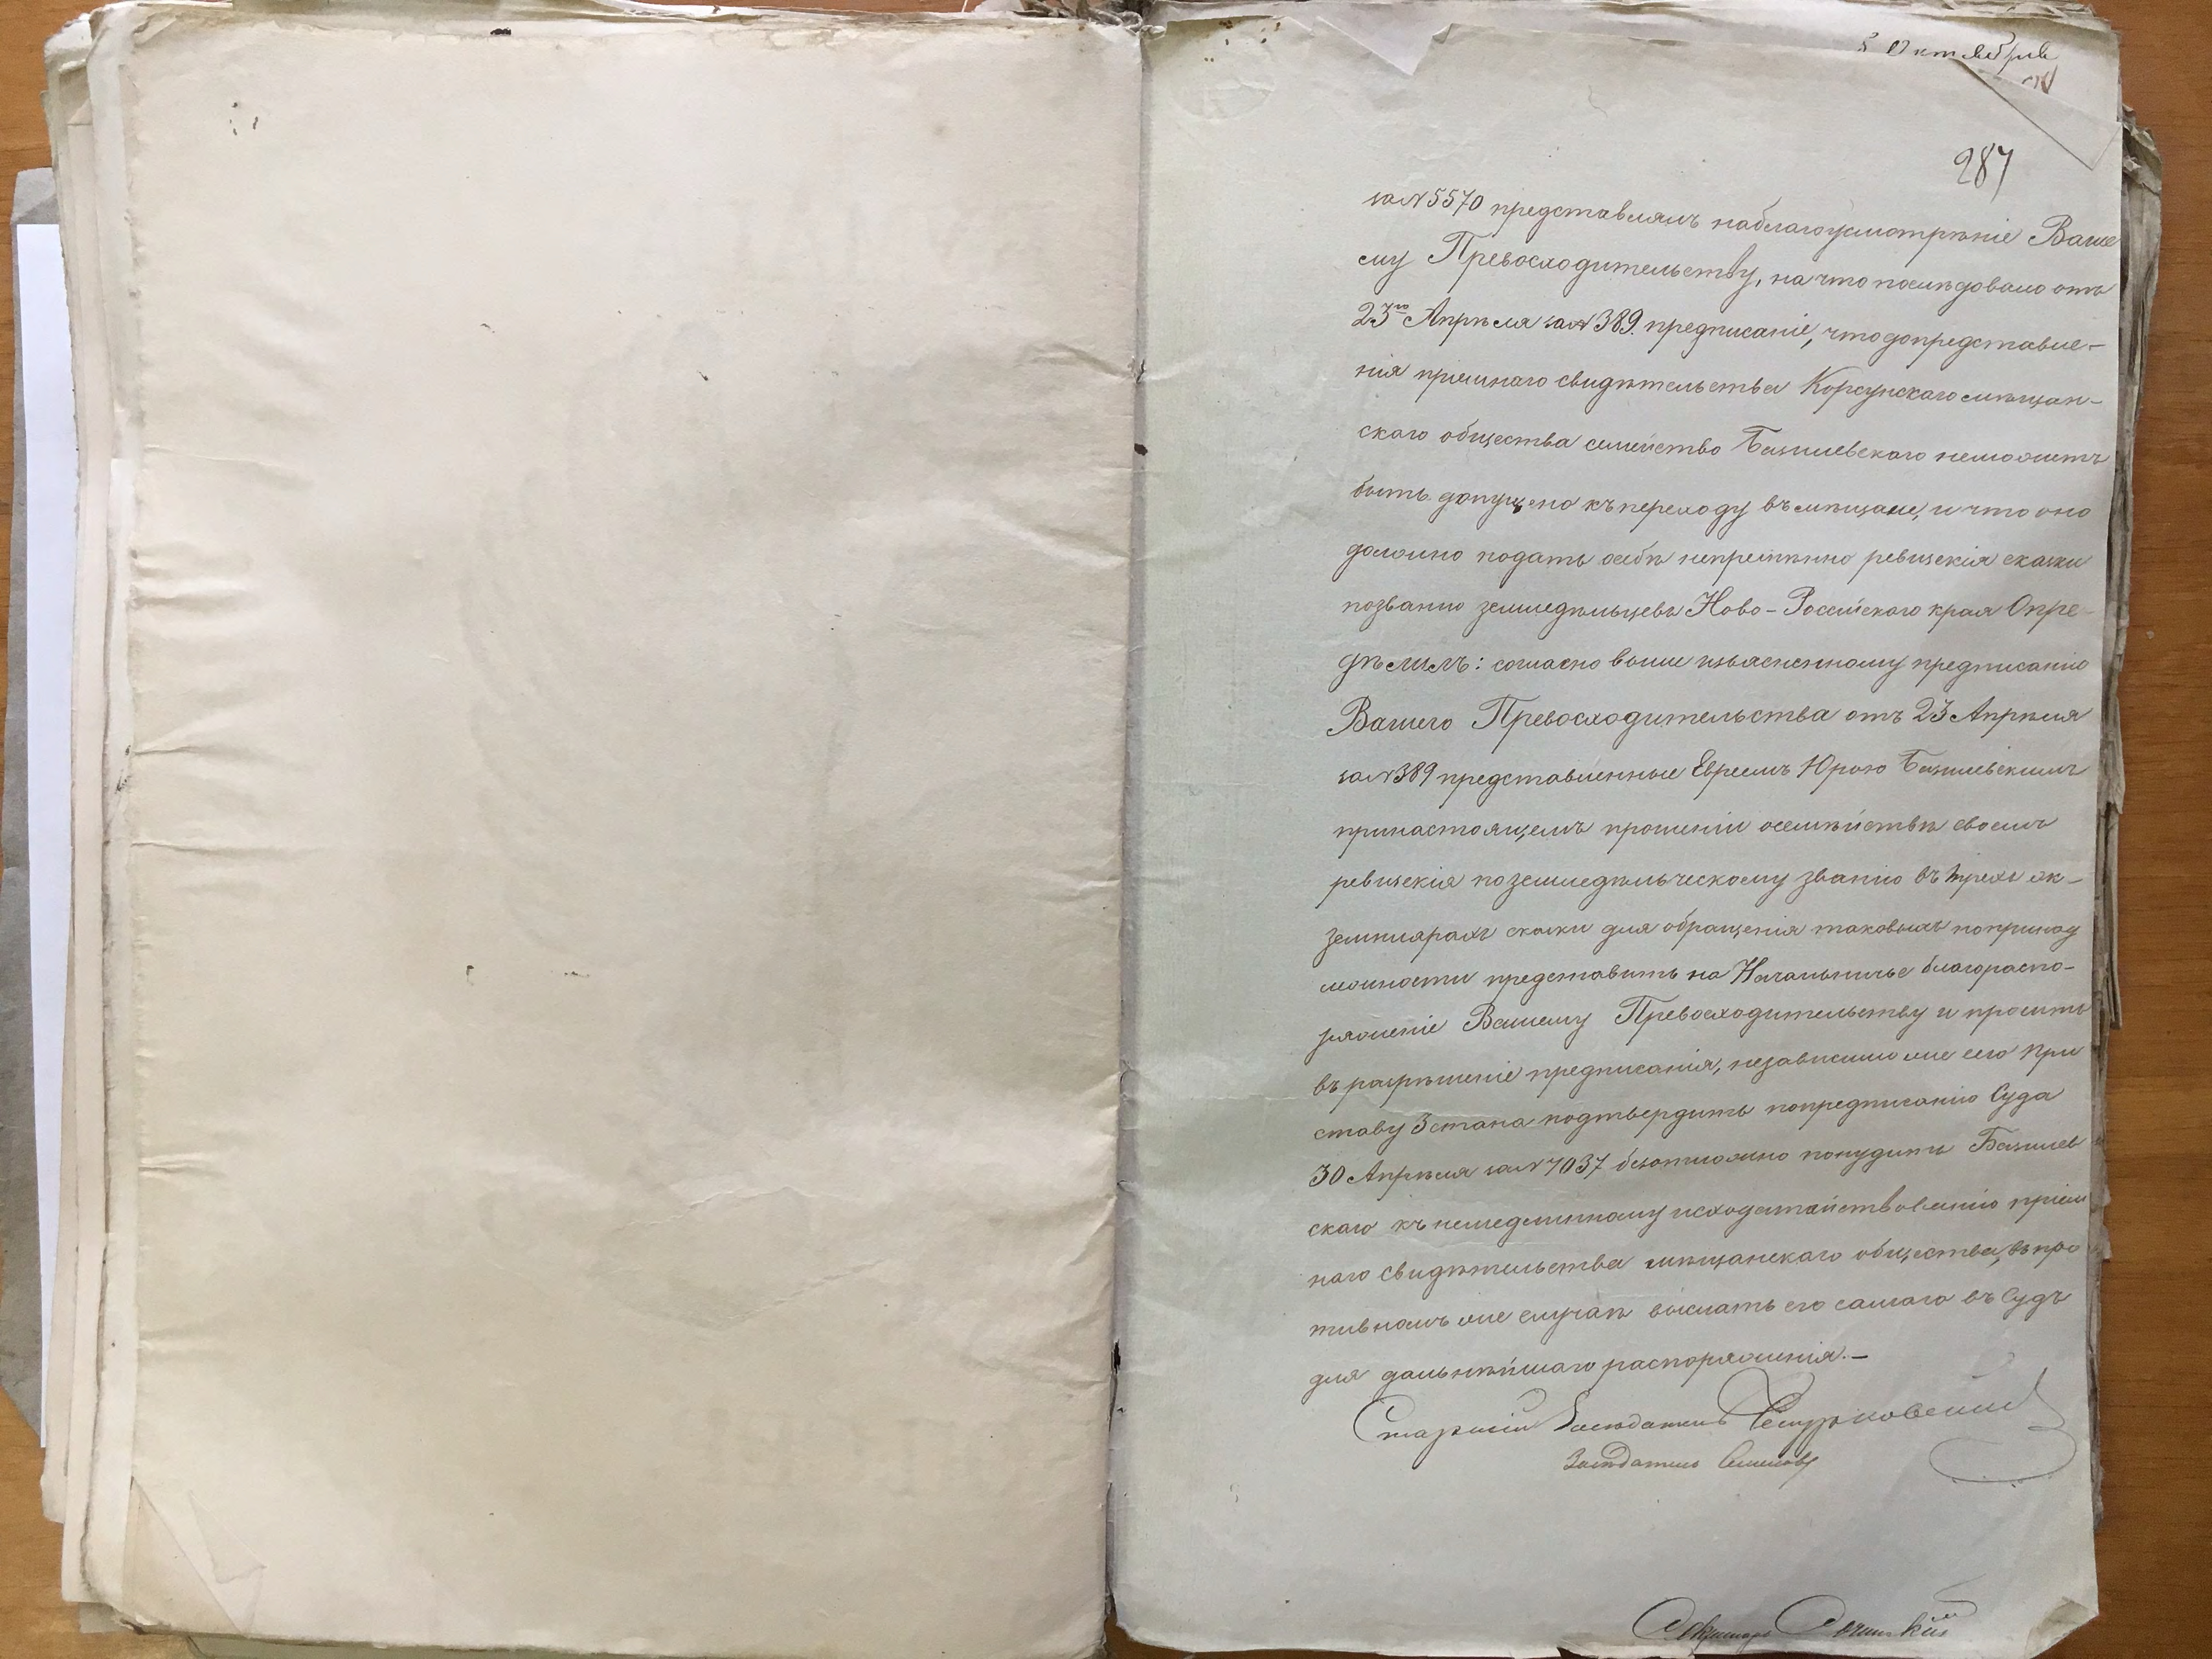 5 Октября
287
за № 5570 представлялъ на благоусмотрѣніе Ваше
му Превосходительству, на что послѣдовало отъ
23го Апрѣля за № 389. предписаніе, что до представле-
нія пріемнаго свидѣтельства Корсунскаго мѣщан-
скаго общества семейство Базилевскаго неможетъ
быть допущено къ переходу въ мѣщане, и что оно
должно подать о себѣ непремѣнно ревизскія сказки
по званію земледѣльцевъ Ново-Россійскаго края Опре-
дѣлилъ: согласно выше изъясненному предписанію
Вашего Превосходительства отъ 23 Апрѣля
за № 389 представленные Евреемъ Юрою Базилевскимъ
при настоящемъ прошеніи о семѣйствѣ своемъ
ревизскія по земледѣльческому званію въ трехъ эк-
земплярахъ сказки для обращенія таковыхъ по принад
лежности представить на Начальничье благораспо-
ряженіе Вашему Превосходительству и просить
въ разрѣшеніе предписанія, независимо же сего При
ставу 3 стана подтвердить по предписанію Суда
30 Апрѣля за № 7037 безотложно понудить Базилев
скаго къ немедленному исходатайствованію пріем
наго свидѣтельства мѣщанскаго общества, въ про
тивномъ же случаѣ выслать его самаго въ Судъ
для дальнѣйшаго распоряженія.—
Старшій Засѣдатель
Засѣдатель
Секретарь